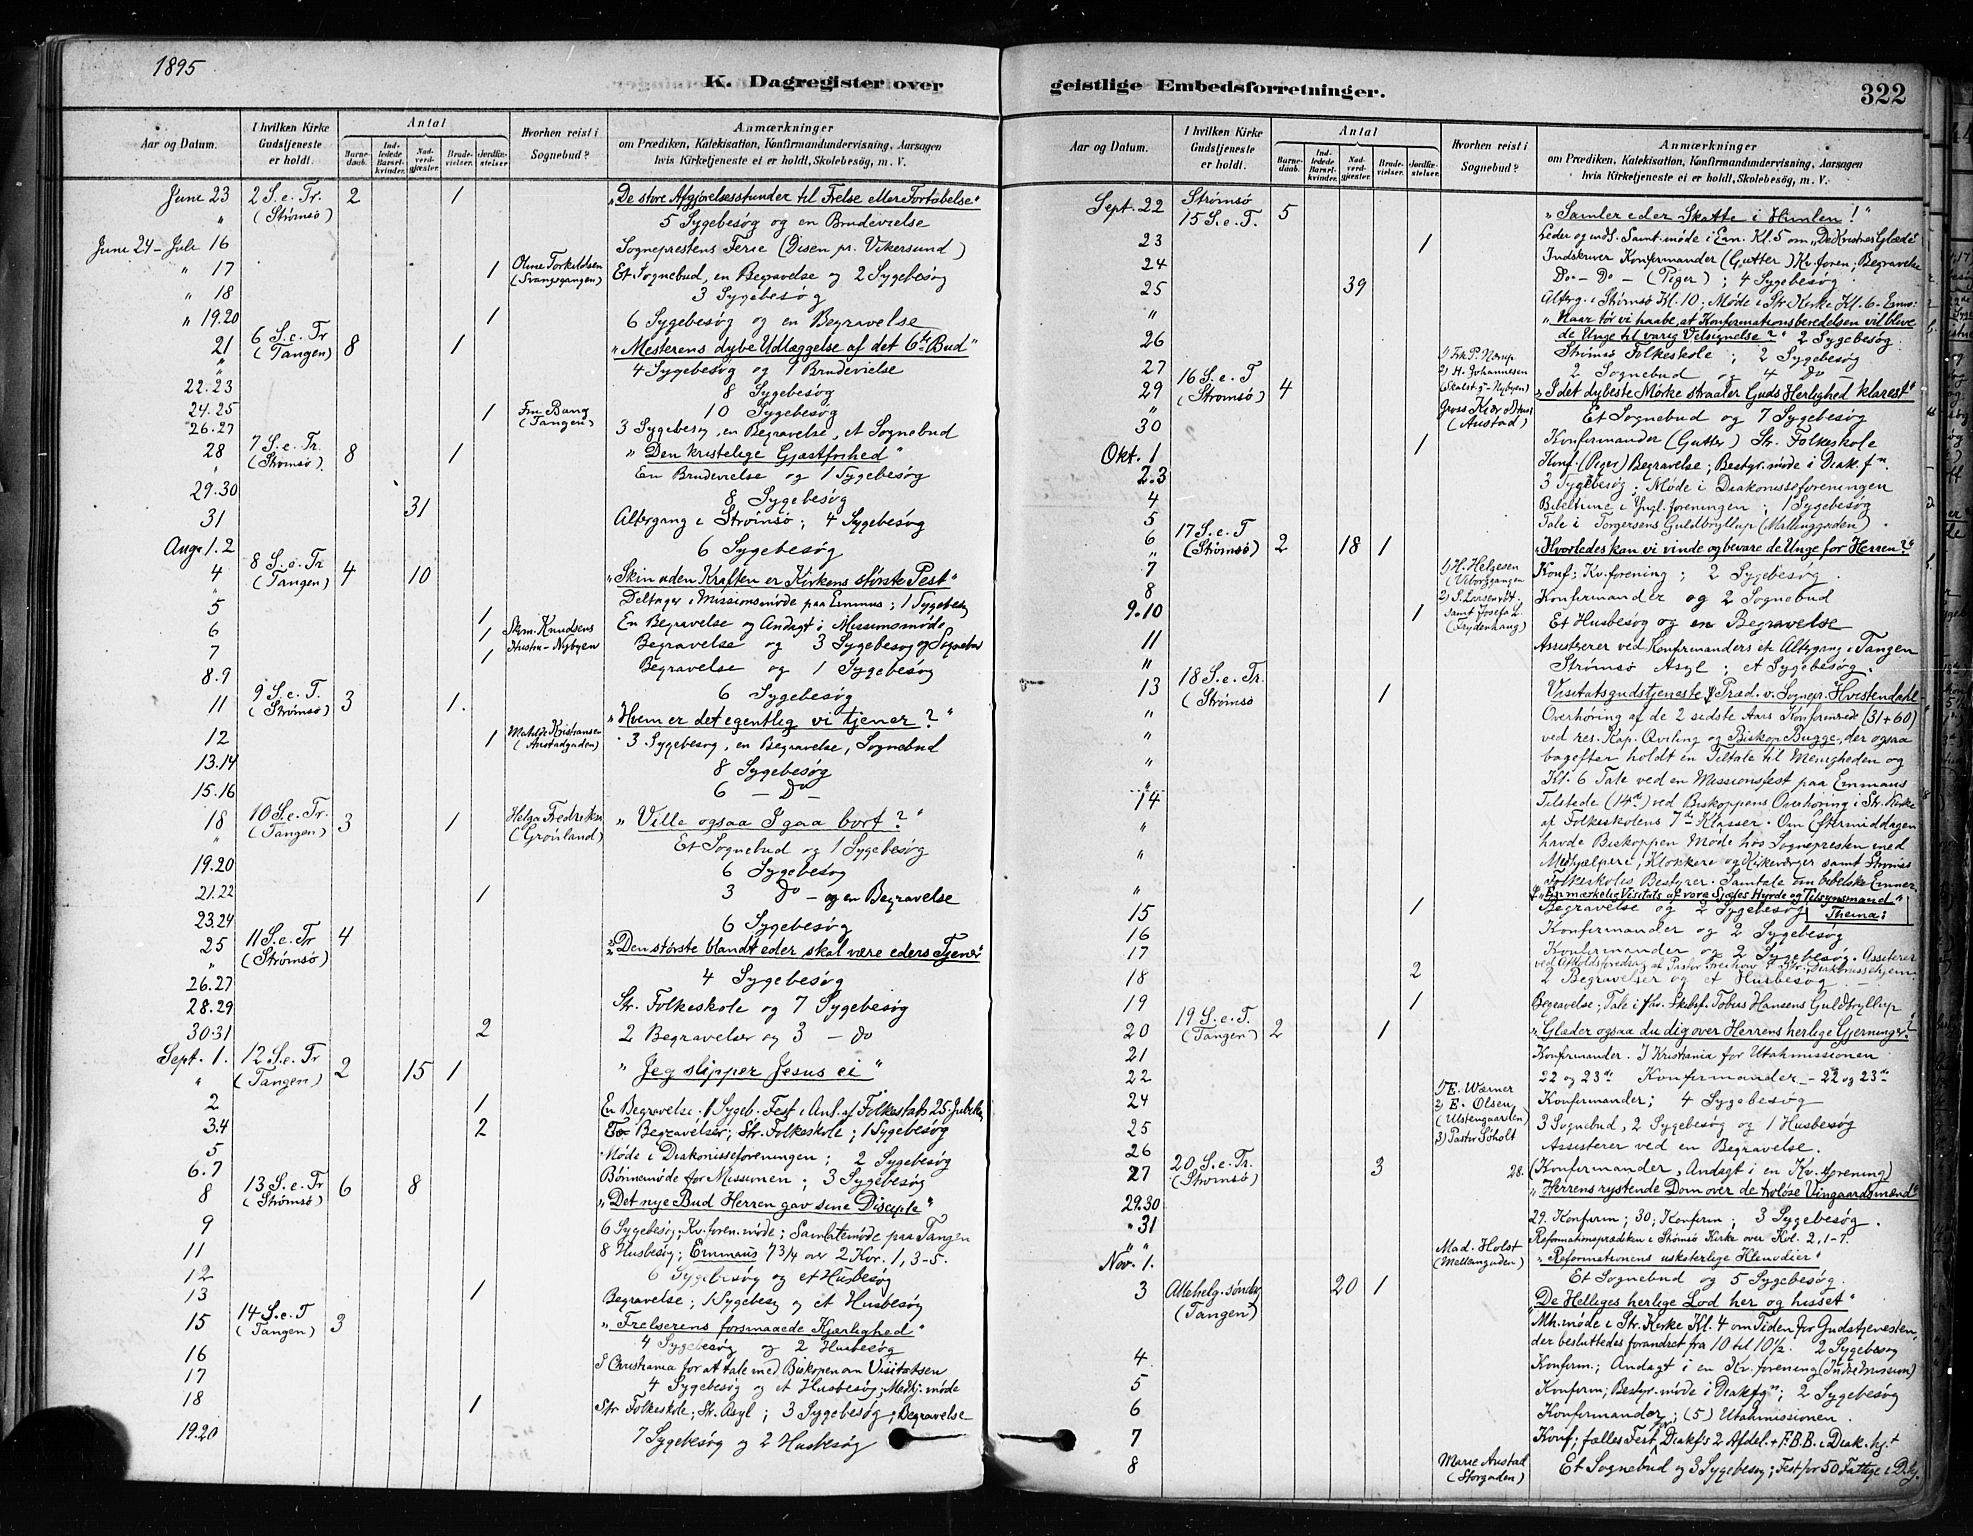 1895
K. Dagregister over
Aar og Datum.
I hvilken Kirke Gudstjeneste er holdt.
Antal
Barnedaab.
Indledede Barselkvinder.
Nadverdgjæster.
Brudevielser.
Jordfæstelser
Hvorhen reist i Sognebud?
Anmærkninger
om Prædiken, Katekisation, Konfirmandundervisning, Aarsagen
hvis Kirketjeneste ei er holdt, Skolebesøg, m. V.
June 23 2 S. e. Tr. (Strømsø) 2 1 „De store Afgjørelsesstunder til Frelse eller Fortabelse"
" 5 Sygebesøg og en Brudevielse
June 24 – Juli 16 Sogneprestens Ferie (Disen pr. Vikersund)
" 17 1 Oline Torkildsen (Svangsgangen) Et Sognebud, en Begravelse og 2 Sygebesøg
" 18 3 Sygebesøg
" 19.20 1 6 Sygebesøg og en Begravelse
21 6 S. e. Tr (Tangen) 8 1 „Mesterens dybe Udlæggelse af det 6te Bud"
" 4 Sygebesøg og 1 Brudevielse
22.23 8 Sygebesøg
24.25 10 Sygebesøg
26.27 1 Fru Bang (Tangen) 3 Sygebesøg, en Begravelse, et Sognebud
28 7 S. e. Tr. (Strømsø) 8 1 „Den kristelige Gjæstfrihed"
" En Brudevielse og 1 Sygebesøg
29.30 8 Sygebesøg
31 31 Altergang i Strømsø; 4 Sygebesøg
Aug. 1.2 6 Sygebesøg
4 8 S. e. Tr (Tangen) 4 10 „Skin uden Kraften er Kirkens største Pest"
" Deltager i Missionsmøde paa Emmaus; 1 Sygebesøg
5 1 En Begravelse og Andagt i Missionsmøde
6 1 Skom. Knudsens Hustru – Nybyen Begravelse og 3 Sygebesøg og Sognebud
7 1 Begravelse og 1 Sygebesøg
8.9 6 Sygebesøg
11 9 S. e. T. (Strømsø) 3 1. „Hvem er det egentlig vi tjener?"
12 1 Mathilde Kristiansen (Austadgaden) 3 Sygebesøg, en Begravelse, Sognebud
13.14 8 Sygebesøg
15.16 6 – Do –
18 10 S. e. Tr. (Tangen) 3 1 Helga Fredriksen (Grønland) „Ville ogsaa I gaa bort?"
" Et Sognebud og 1 Sygebesøg
19.20 6 Sygebesøg
21.22 1 3 Do – og en Begravelse
23.24 6 Sygebesøg
25 11 S. e. Tr (Strømsø) 4 „Den største blandt eder skal være eders Tjener"
26.27 4 Sygebesøg
28.29 Str. Folkeskole og 7 Sygebesøg
30.31 2 2 Begravelser og 3 – do
Sept. 1. 12 S. e. Tr (Tangen) 2 15 1 „Jeg slipper Jesus ei"
2 1 En Begravelse; 1 Sygeb. Fest i Anl. af Folkestads 25. Jubelæum
3.4 2 To Begravelser; Str. Folkeskole; 1 Sygebesøg
5 Møde i Diakonisseforeningen; 2 Sygebesøg
6.7 Bønnemøde for Missionen; 3 Sygebesøg
8 13 S. e. Tr (Strømsø) 6 8 „Det nye Bud Herren gav sine Disciple"
9 6 Sygebesøg; Kv. foren. møde; Samtalemøde paa Tangen
11 8 Husbesøg; Emmaus 7 3/4 over 2 Kor. 1, 3-5.
12 6 Sygebesøg og et Husbesøg
13 1 Begravelse; 1 Sygebesøg og et Husbesøg
15 14 S. e. T (Tangen) 3 „Frelserens forsmaaede Kjærlighed"
4 Sygebesøg og 2 Husbesøg
16 I Christiania for at tale med Biskopen om Visitatsen
17 4 Sygebesøg og et Husbesøg; Medhj. møde
18 1 Str Folkeskole, Str. Asyl; 3 Sygebesøg; Begravelse
19.20 7 Sygebesøg og 2 Husbesøg
geistlige Embedsforretninger.
322
Aar og Datum.
I hvilken Kirke Gudstjeneste er holdt.
Antal
Barnedaab.
Indledede Barselkvinder.
Nadverdgjæster.
Brudevielser.
Jordfæstelser.
Hvorhen reist i Sognebud?
Anmærkninger
om Prædiken, Katekisation, Konfirmandundervisning, Aarsagen
hvis Kirketjeneste ei er holdt, Skolebesøg, m. V.
Sept. 22 Strømsø 15 S. e. T. 5 „Samler eder Skatte i Himlen!"
23 1 Leder og indl. Samt. møde i Em. Kl. 5 om „De Kristnes Glæde"
24 Indskriver Konfirmander (Gutter) Kv. foren; Begravelse
25 39 Do – Do (Piger); 4 Sygebesøg
" Alterg. i Strømsø Kl. 10; Møde i Str. Kirke Kl. 6 – Emne:
„Naar tør vi haabe, at Konfirmationsberedelsen vil blive
26 de Unge til varig Velsignelse?" 2 Sygebesøg
27 1) Frk P. Nærup 2) H. Johannesen (Skalst.g – Nybyen) Strømsø Folkeskole; 2 Sygebesøg
2 Sognebud og 4 do
29 16 S. e. T (Strømsø) 4 „I det dybeste Mørke straaler Guds Herlighed klarest"
" Gross Kiær d Hus (Austad) Et Sognebud og 7 Sygebesøg
30 Konfirmander (Gutter) Str. Folkeskole
Okt. 1 1 Konf. (Piger) Begravelse; Bestyr. møde i Diak. fn.
2.3 3 Sygebesøg; Møde i Diakonisseforeningen
4 Bibeltime i Yngl. foreningen; 1 Sygebesøg
5 Tale i Torgersens Guldbryllup (Mallinggaden)
6 17 S. e. T (Strømsø) 2 18 1 „Hvorledes kan vi vinde og bevare de Unge for Herren?"
7 1) H. Helgesen (Viborggangen Konf; Kv. forening; 2 Sygebesøg.
8 2) S. Larsen Konfirmander og 2 Sognebud
9.10 1 samt Josefa L. (Frydenhaug) Et Husbesøg og en Begravelse
11 Assisterer ved Konfirmanders et Altergang i Tangen
" Strømsø Asyl; et Sygebesøg.
13 18 S. e. Tr. (Strømsø 1 Visitatsgudstjeneste; Præd. v. Sognepr. Hvistendahl
" Overhøring af de 2 sidste Aars Konfirmerede (31+60)
" ved res. Kap. Qviling og Biskop Bugge, der ogsaa
" bagefter holdt en Tiltale til Menigheden og
" Kl. 6 Tale ved en Missionsfest paa Emmaus
14 Tilstede (14de) ved Biskoppens Overhøring i Str. Kirke
" af Folkeskolens 7de Klasser. Om Eftermiddagen
" havde Biskoppen Møde hos Sognepresten med
Medhjælpere, Klokkere og Kirkeværger samt Strømsø
" Folkeskoles Bestyrer. Samtale om bibelske Emner
„En mærkelig Visitats af vore Sjæles Hyrde og Tilsynsmand"
15 1 Begravelse og 2 Sygebesøg Thema:
16 Konfirmander og 2 Sygebesøg
17 Konfirmander og 2 Sygebesøg. Assisterer
18 2 2 Begravelser og et Husbesøg
19 1 Begravelse; Tale i Tobias Hansens Guldbryllup
20 19 S. e. T. (Tangen) 2 1 „Glæder ogsaa du dig over Herrens herlige Gjerninger?"
21 Konfirmander. I Kristiania for Utahmissionen
22 22 og 23de Konfirmander – 22 og 23de
24 1) E. Wærner 2) E. Olsen (Ulstengaarden) Konfirmander; 4 Sygebesøg
25 3) Pastor Søholt 3 Sognebud, 2 Sygebesøg og 1 Husbesøg
26 Assisterer ved en Begravelse.
27 20 S. e. Tr. (Strømsø) 3 28. (Konfirmander, Andagt i en Kv. forening)
„Herrens rystende Dom over de troløse Vingaardsmænd"
29.30 29. Konfirm; 30; Konfirm; 3 Sygebesøg.
" 31 Reformationsprædiken i Strømsø Kirke over Kol. 2, 1-7.
" " Mad. Holst (Mellemgaden) „Reformationens uskaterlige Klenodier"
Nov. 1. Et Sognebud og 5 Sygebesøg.
3 Allehelg. søndag (Tangen) 20 1 „De Helliges herlige Lod her og hisset"
Mh. møde i Str. Kirke Kl. 4 om Tiden for Gudstjenesten,
der besluttedes forandret fra 10 til 10½. 2 Sygebesøg
4 Konfirm.; Andagt i en Kv. forening (Indremission)
5 Konfirm; Bestyr. møde i Diakfn; 2 Sygebesøg
6 Konfirmander; (5) Utahmissionen.
7 Konf; fælles Fest for Diakfs 2 Afdel. + F.B.B. i Diak. hj.
8 Marie Austad (Storgaden) Et Sognebud og 3 Sygebesøg; Fest for 50 Fattige i Dhj.